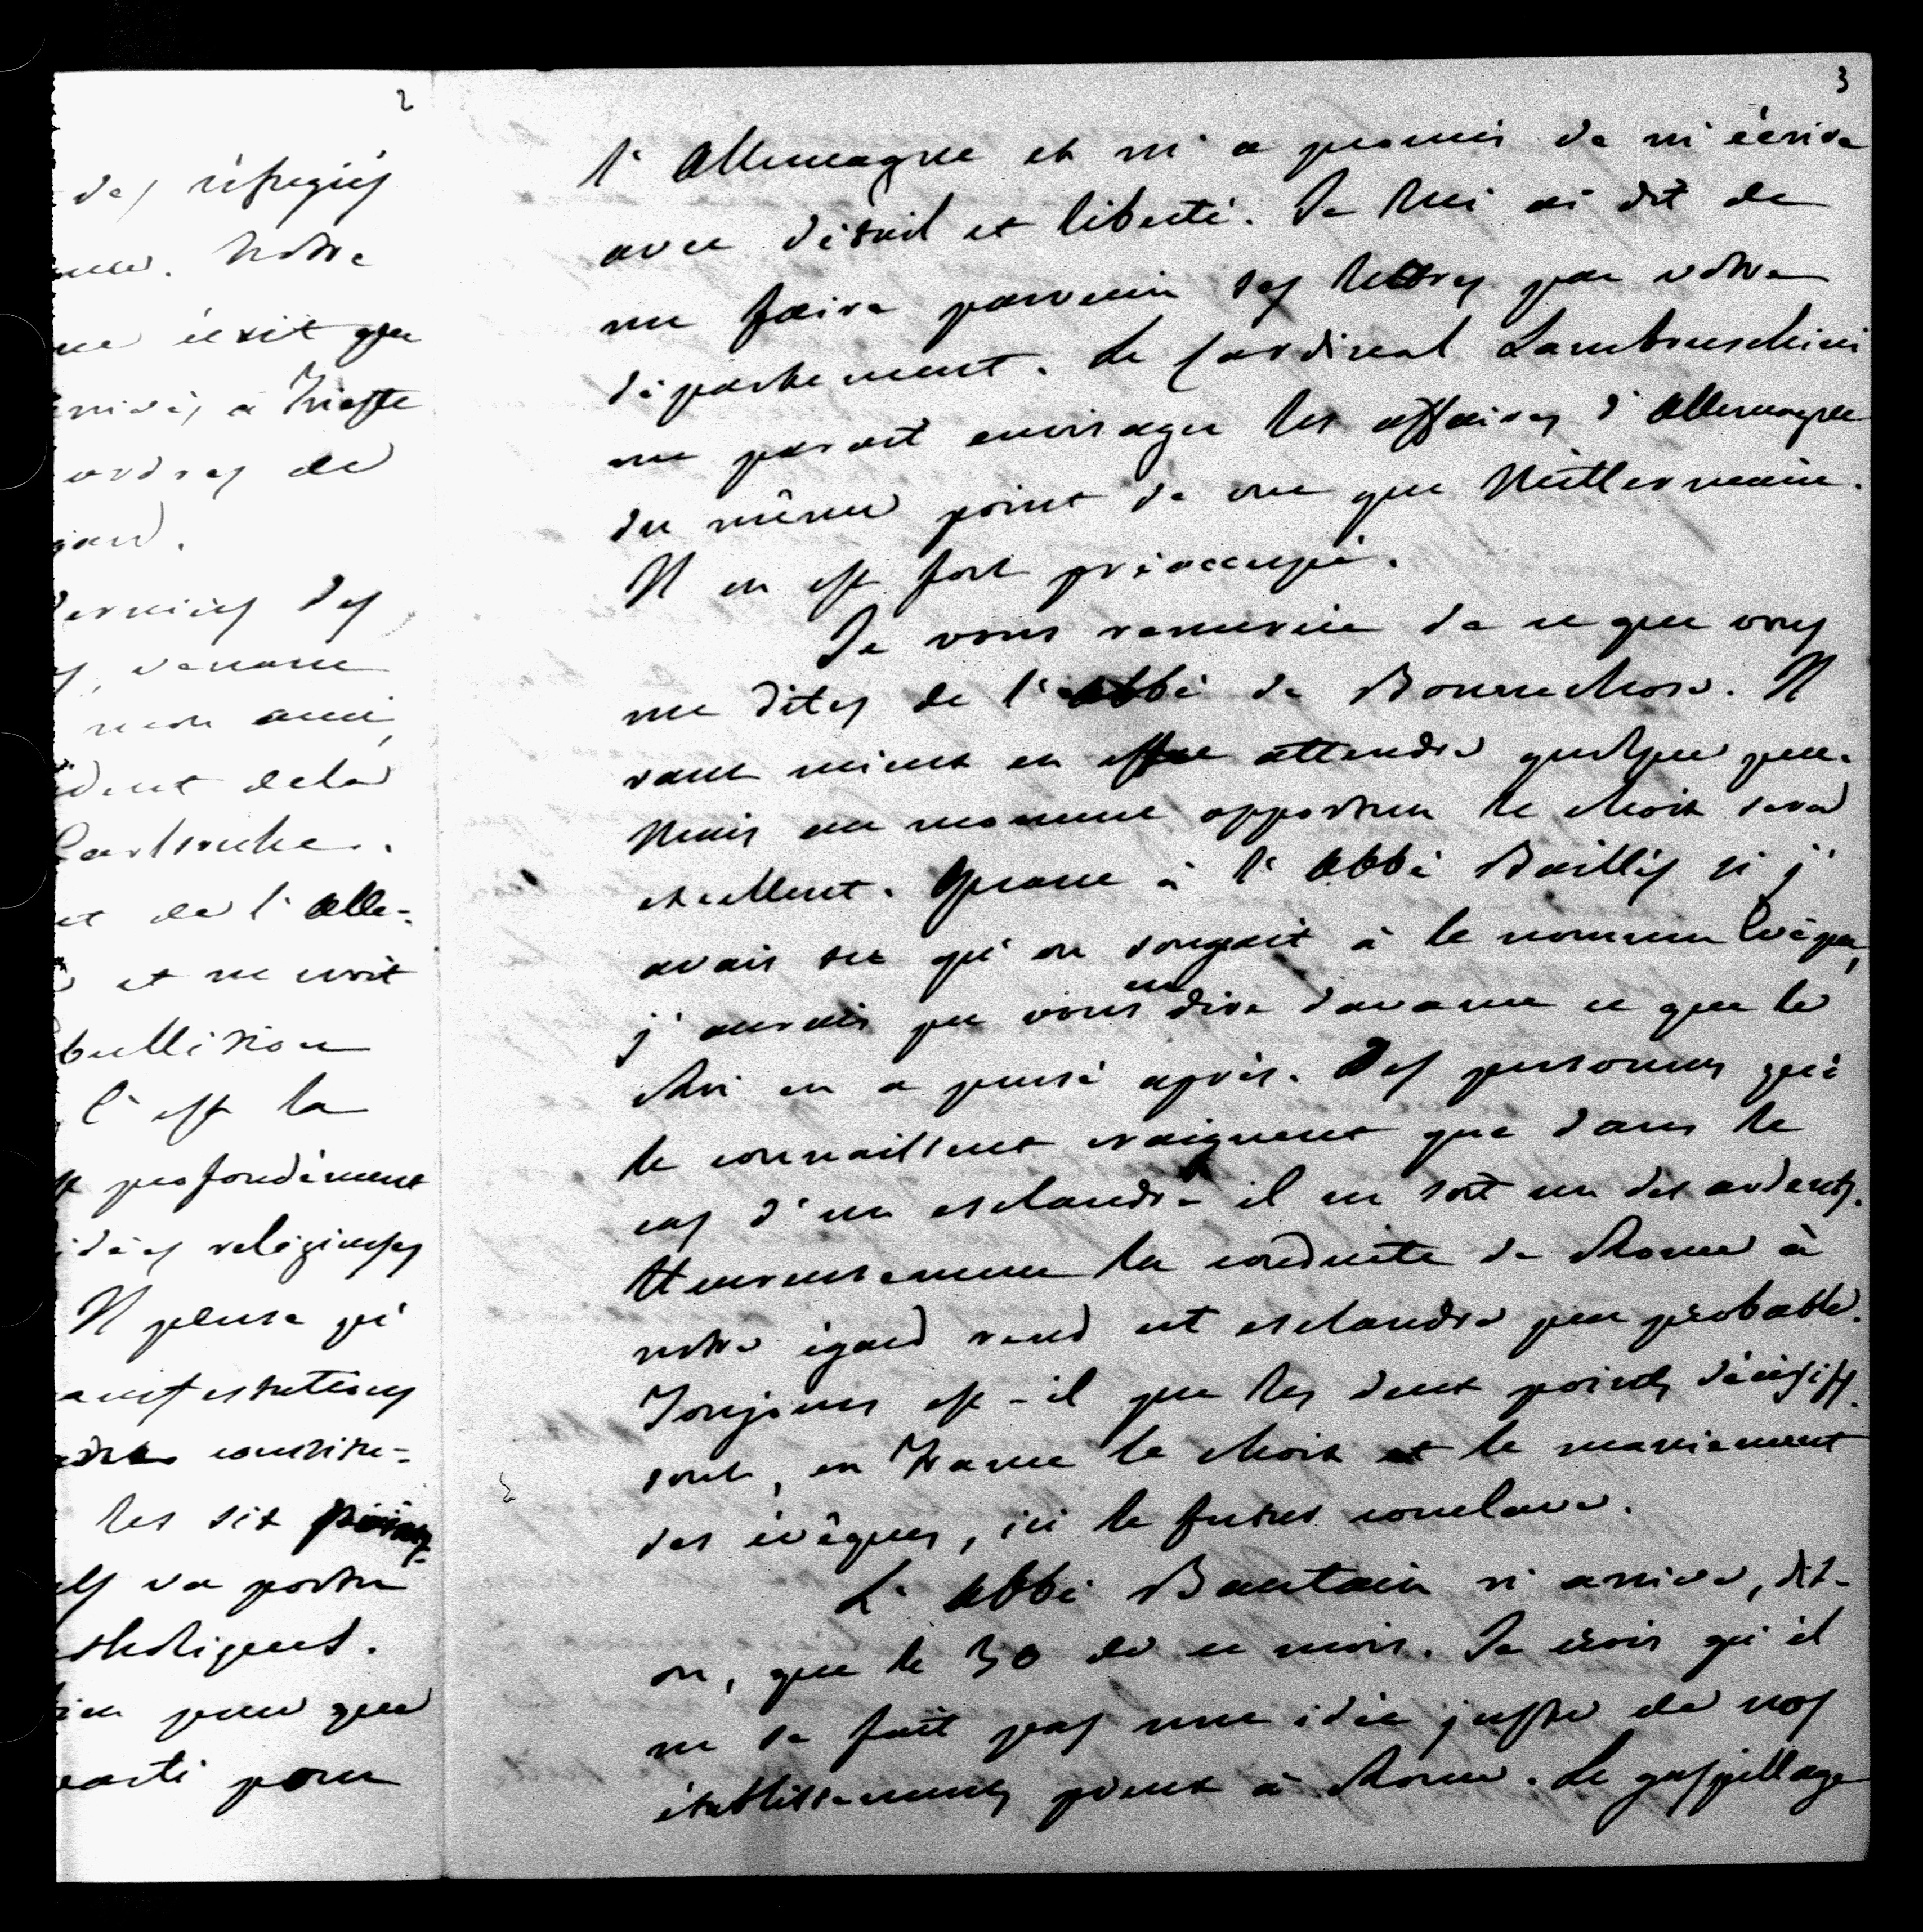 2
des réfugiés
Notre
écrit que
à Trieste
ordres de
derniers des
venant
mon ami,
dela
Carlsruhe.
et de l'Alle-
et ne voit
C'est la
profondément
idées religieuses
Il pense qu'
constitu-
les six points
va porter
pour que
parti pour
3
l'Allemagne et m'a promis de m'écrire
avec détail et liberté. Je lui ai dit de
me faire parvenir ses lettres par votre
département. Le Cardinal Lambruschini
me parait envisager les affaires d'Allemagne
du même point de vue que Mittermaier.
Il en est fort préoccupé.
Je vous remercie de ce que vous
me dites de l'abbé de Bonnechose. Il
vaut mieux en effet attendre quelque peu.
Mais au moment opportun le choix sera
excellent. Quant à l'Abbé Baillès si j'
avais su qu'on songeait à le nommer Evêque,
j'aurais pu vous en dire d'avance ce que le
Roi en a pensé après. Des personnes qui
le connaissent craignent que dans le
cas d'un esclandre il ne soit un des ardents.
Heureusement la conduite de Rome à
notre égard rend cet esclandre peu probable.
Toujours est-il que les deux points décisifs
sont, en France le choix et le maniement
des évêques, ici le futur conclave.
L'Abbé Bautain n'arrive, dit-
on, que le 30 de ce mois. Je crois qu'il
ne se fait pas une idée juste de nos
établissements pieux à Rome. Le gaspillage